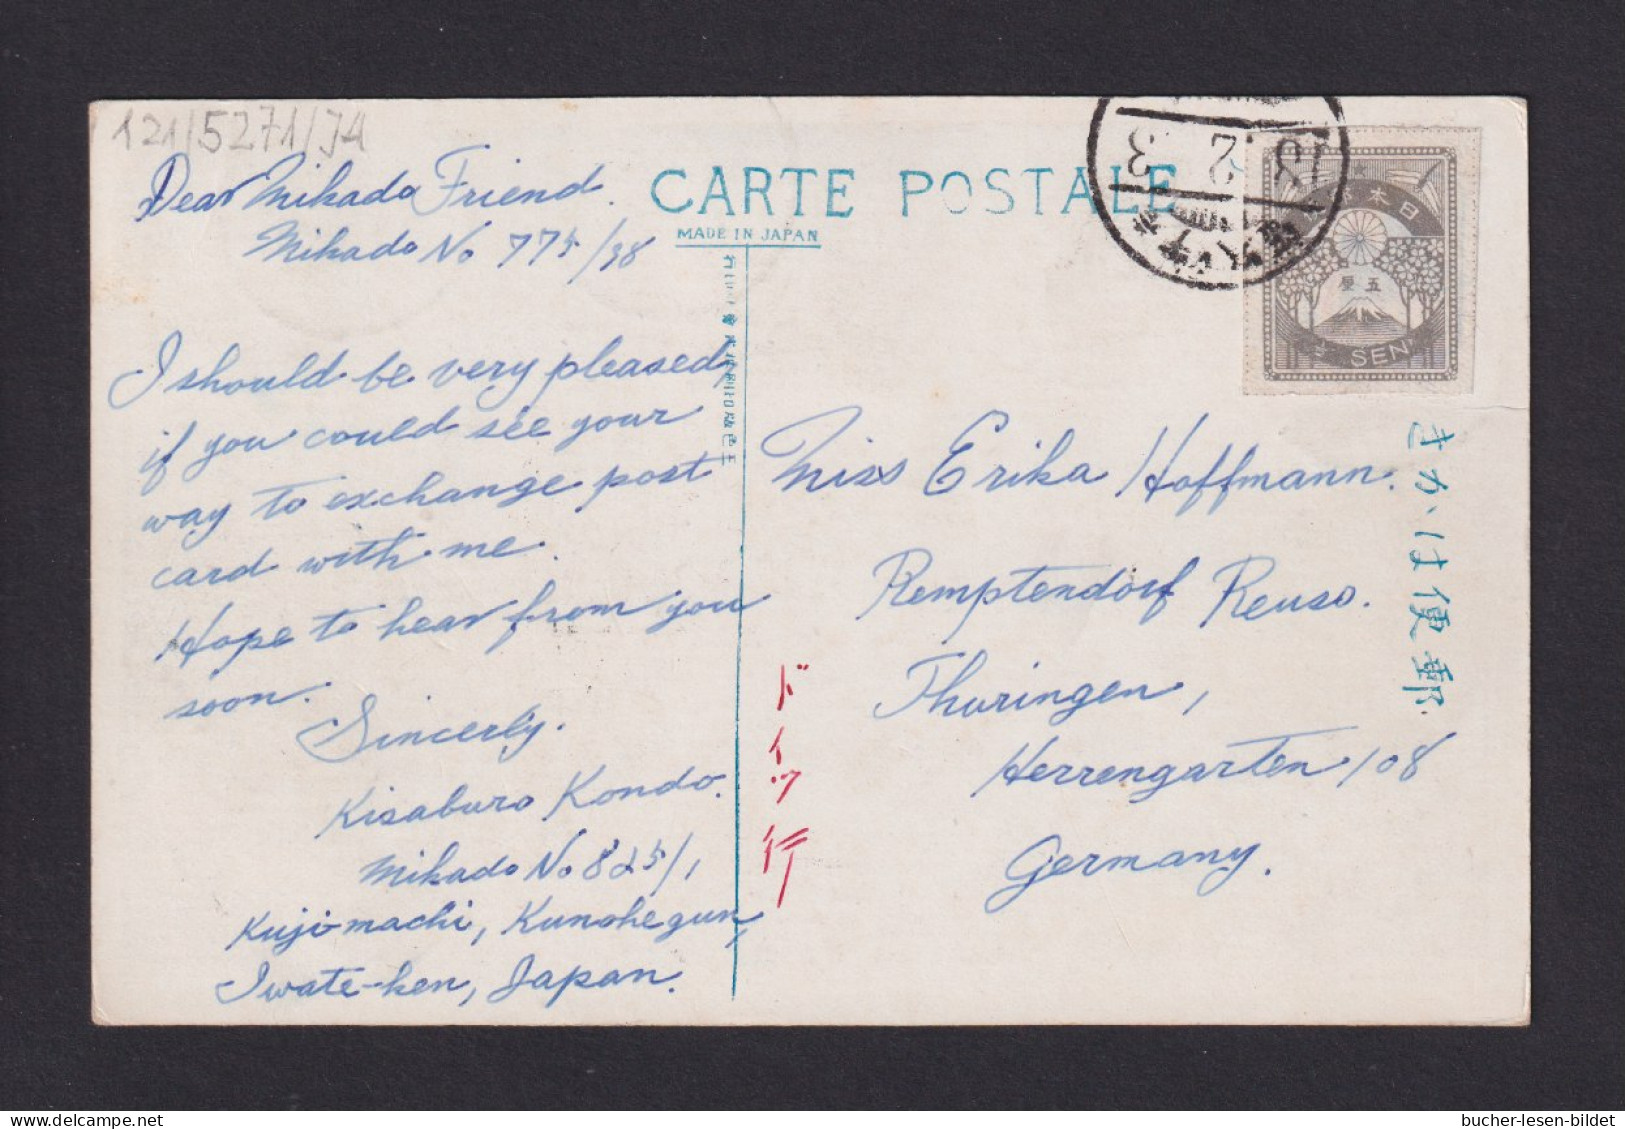 121/5271/JA
Dear Mikado Friend.
Mikado No 775/38
I should be very pleased,
if you could see your
way to exchange post
card with me.
Hope to hear from you
soon.
Sincerly.
Kisaburo Kondo.
Mikado No 825/1
Kuji-machi, Kunohegun,
Iwate-ken, Japan.
CARTE POSTALE
MADE IN JAPAN
3. 2. 18
日本郵便
五厘
½ SEN
きかは便郵
Miss Erika Hoffmann.
Remptendorf Reuso.
Thuringen,
Herrengarten 108
Germany.
ドイツ行
bucher-lesen-bildet